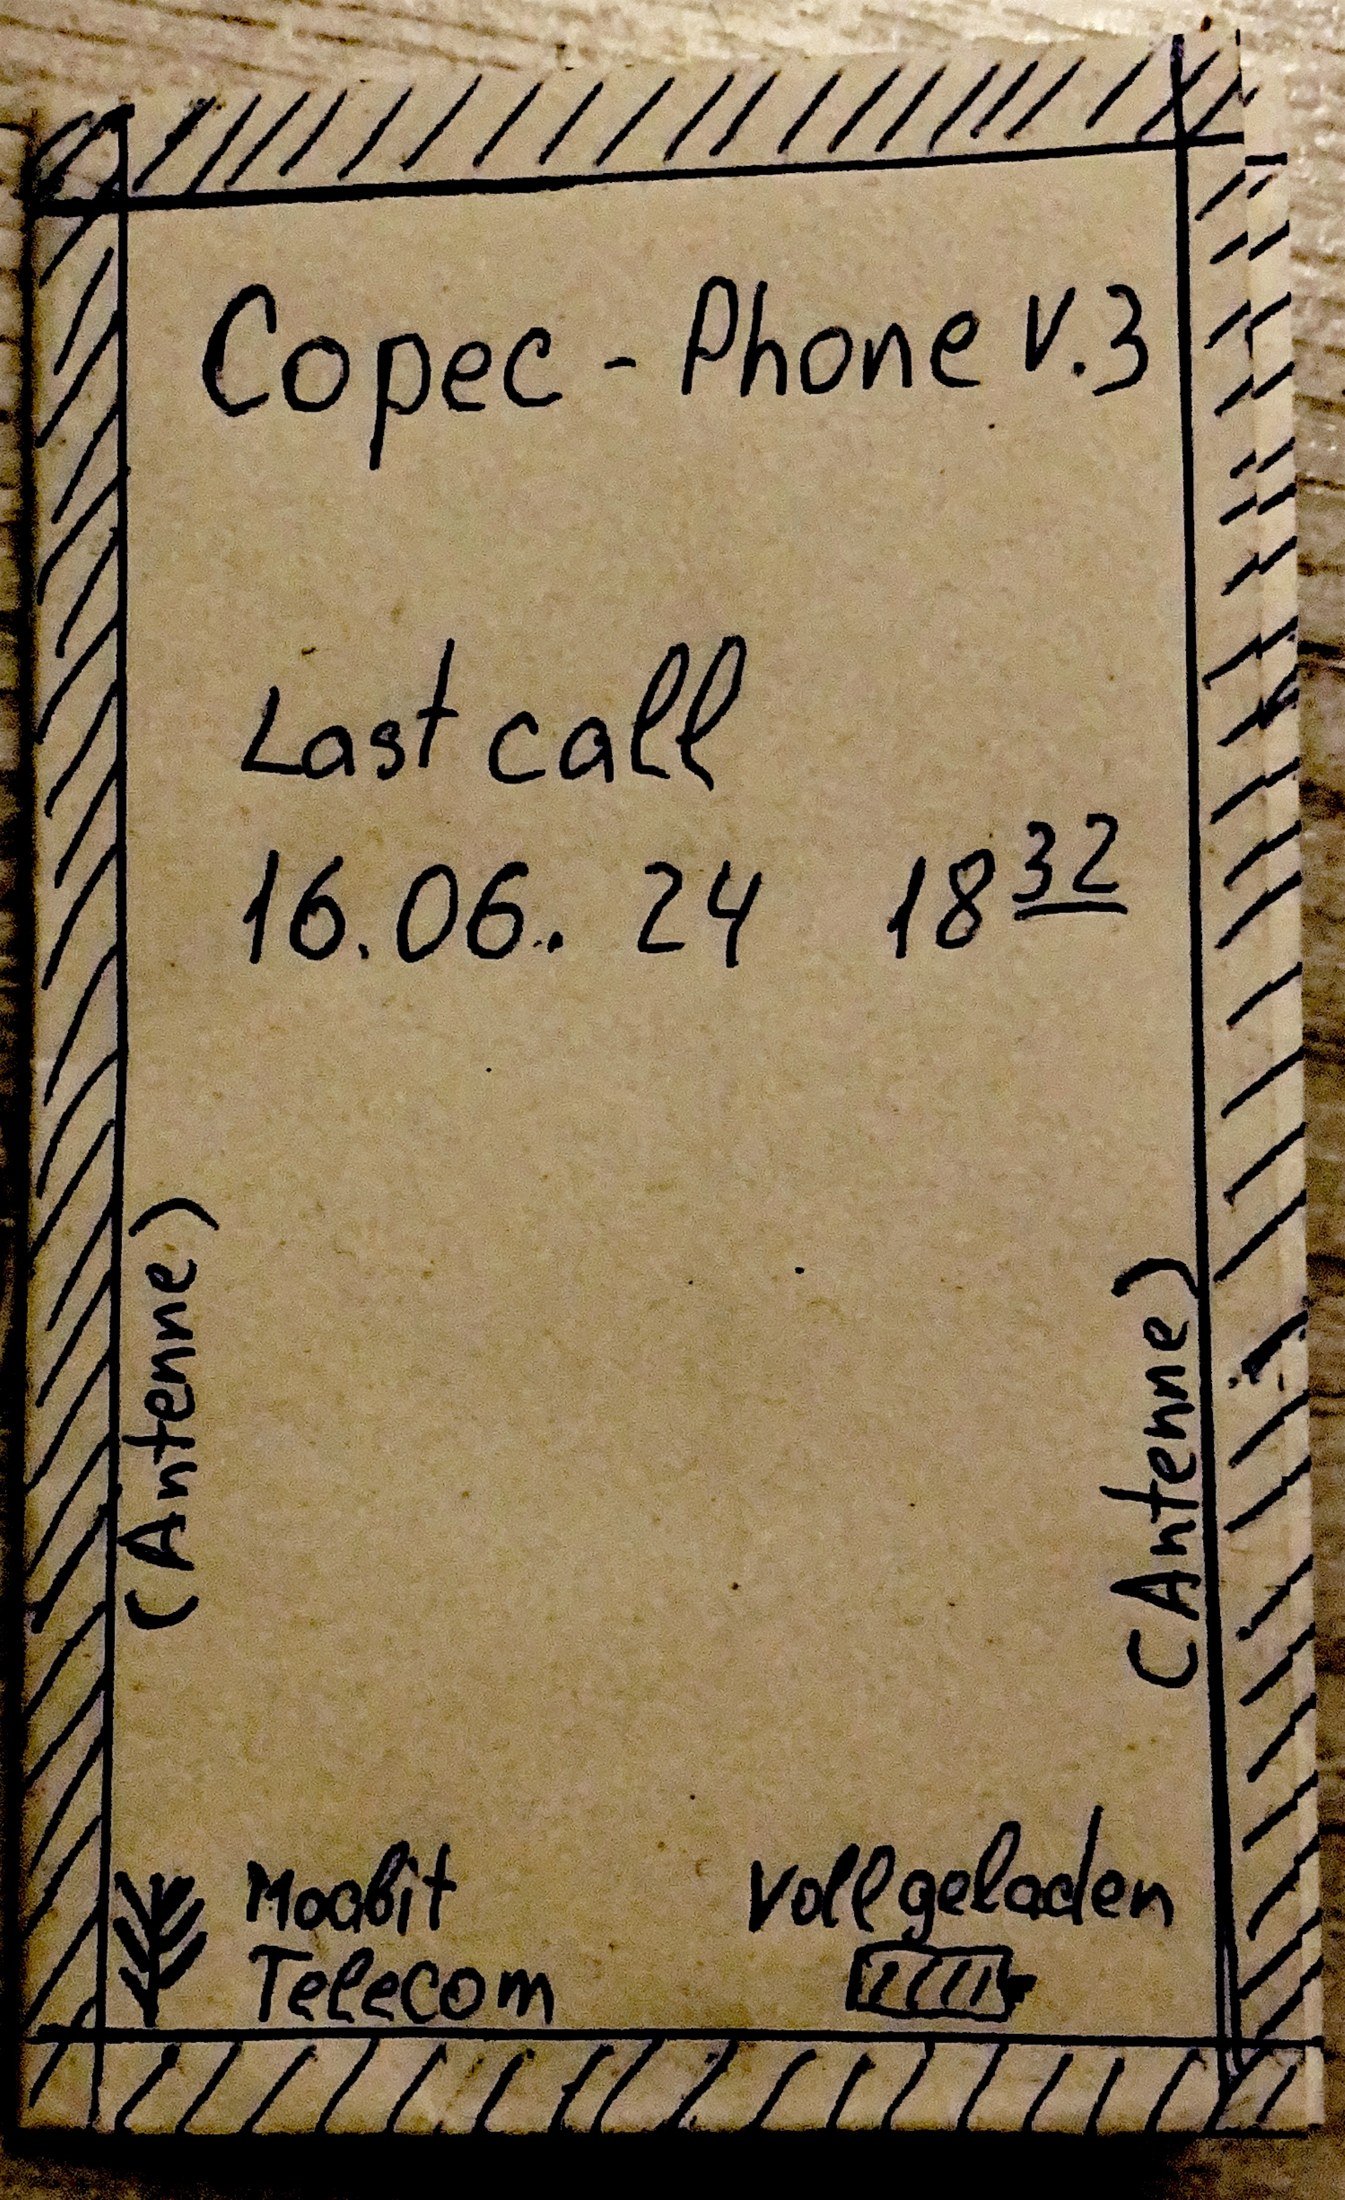 Copec - Phone V.3
Last call
16.06. 24 18 32
(Antenne)
(Antenne)
Moabit
Telecom
Vollgeladen